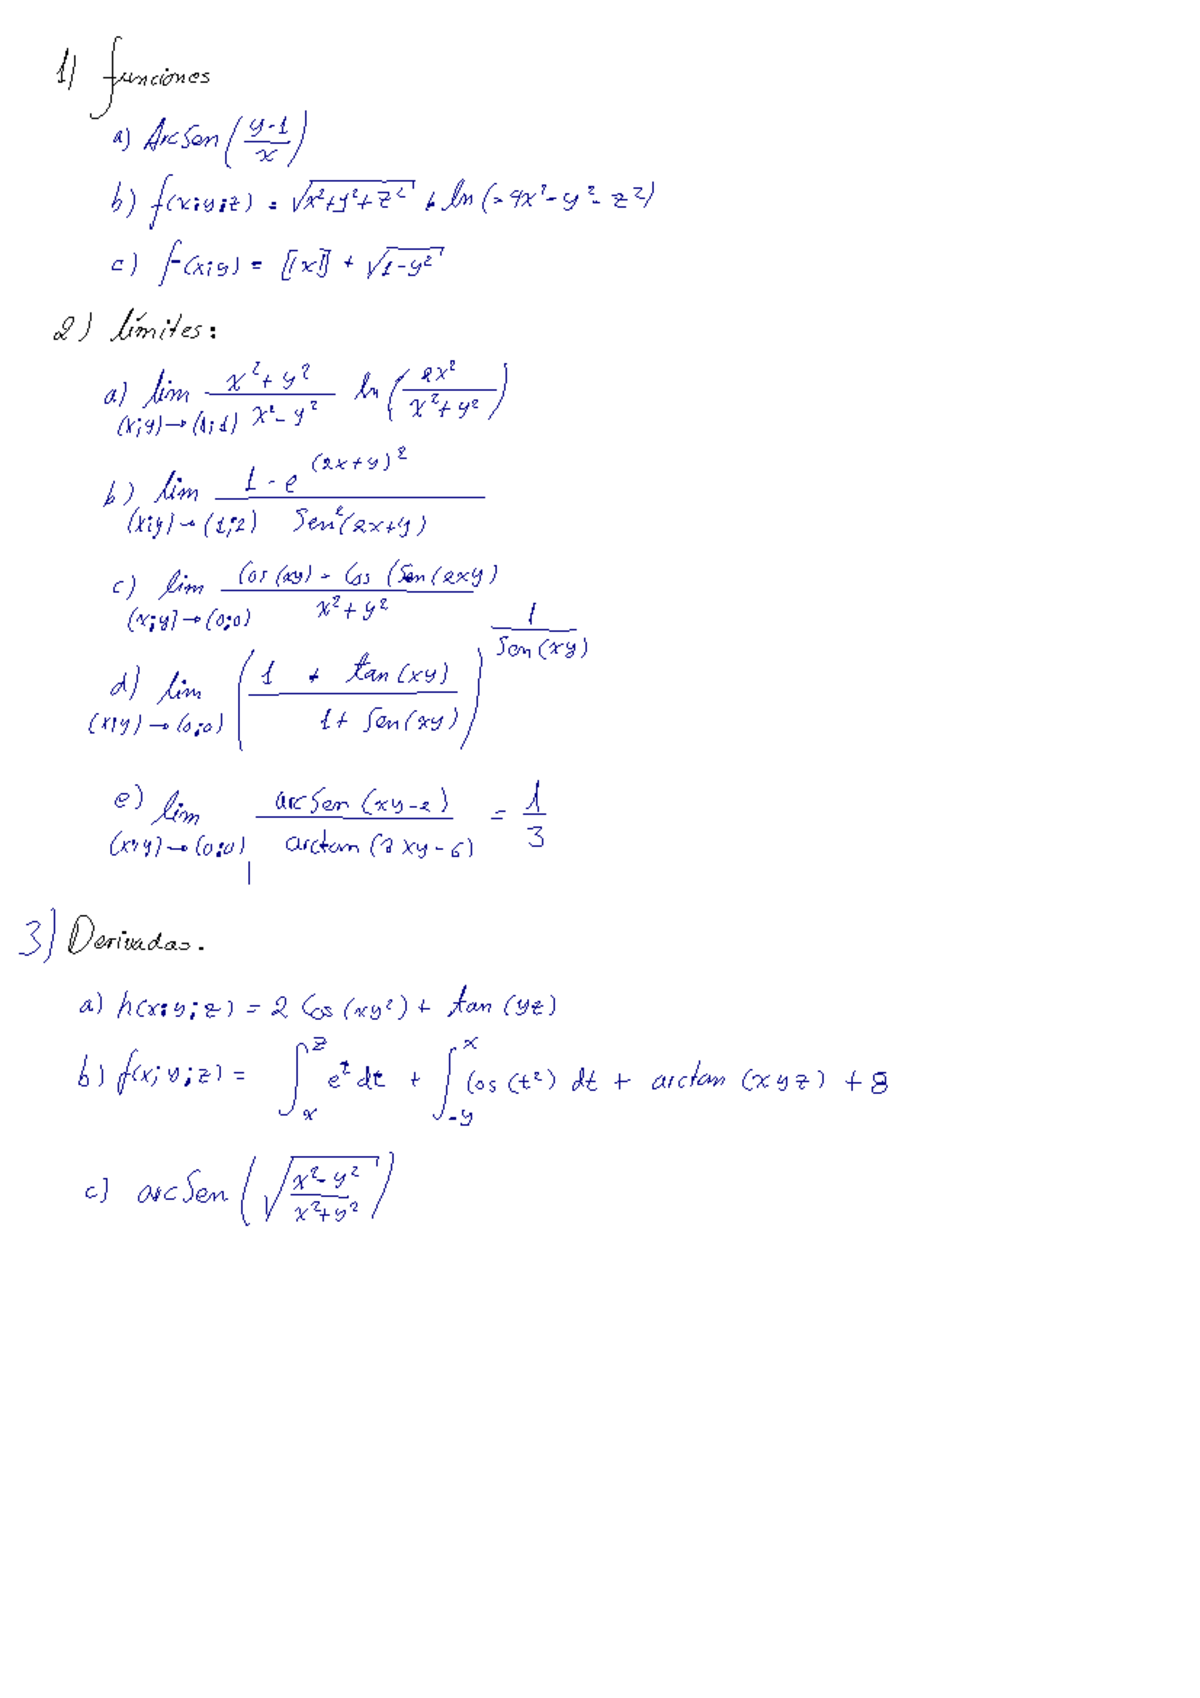 1) funciones
a) ArcSen((y-1)/x)
b) f(x;y;z) = √(x²+y²+z²) + ln(-4x²-y²-z²)
c) f(x;y) = [[x]] + √(1-y²)
2) límites:
a) lim (x;y)→(1;1) (x²+y²)/(x²-y²) ln(2x²/(x²+y²))
b) lim (x;y)→(1;2) (1-e^(2x+y)²)/(Sen²(2x+y))
c) lim (x;y)→(0;0) (Cos(xy) - Cos(Sen(2xy))/(x²+y²)
d) lim (x;y)→(0;0) ((1 + tan(xy))/(1+Sen(xy)))^(1/Sen(xy))
e) lim (x;y)→(0;0) (arcSen(xy-2))/(arctan(3xy-6)) = 1/3
3) Derivadas.
a) h(x;y;z) = 2 Cos(xy²) + tan(yz)
b) f(x;y;z) = ∫_x^z e^t dt + ∫_-y^x Cos(t²) dt + arctan(xyz) + 8
c) arcSen(√((x²-y²)/(x²+y²)))